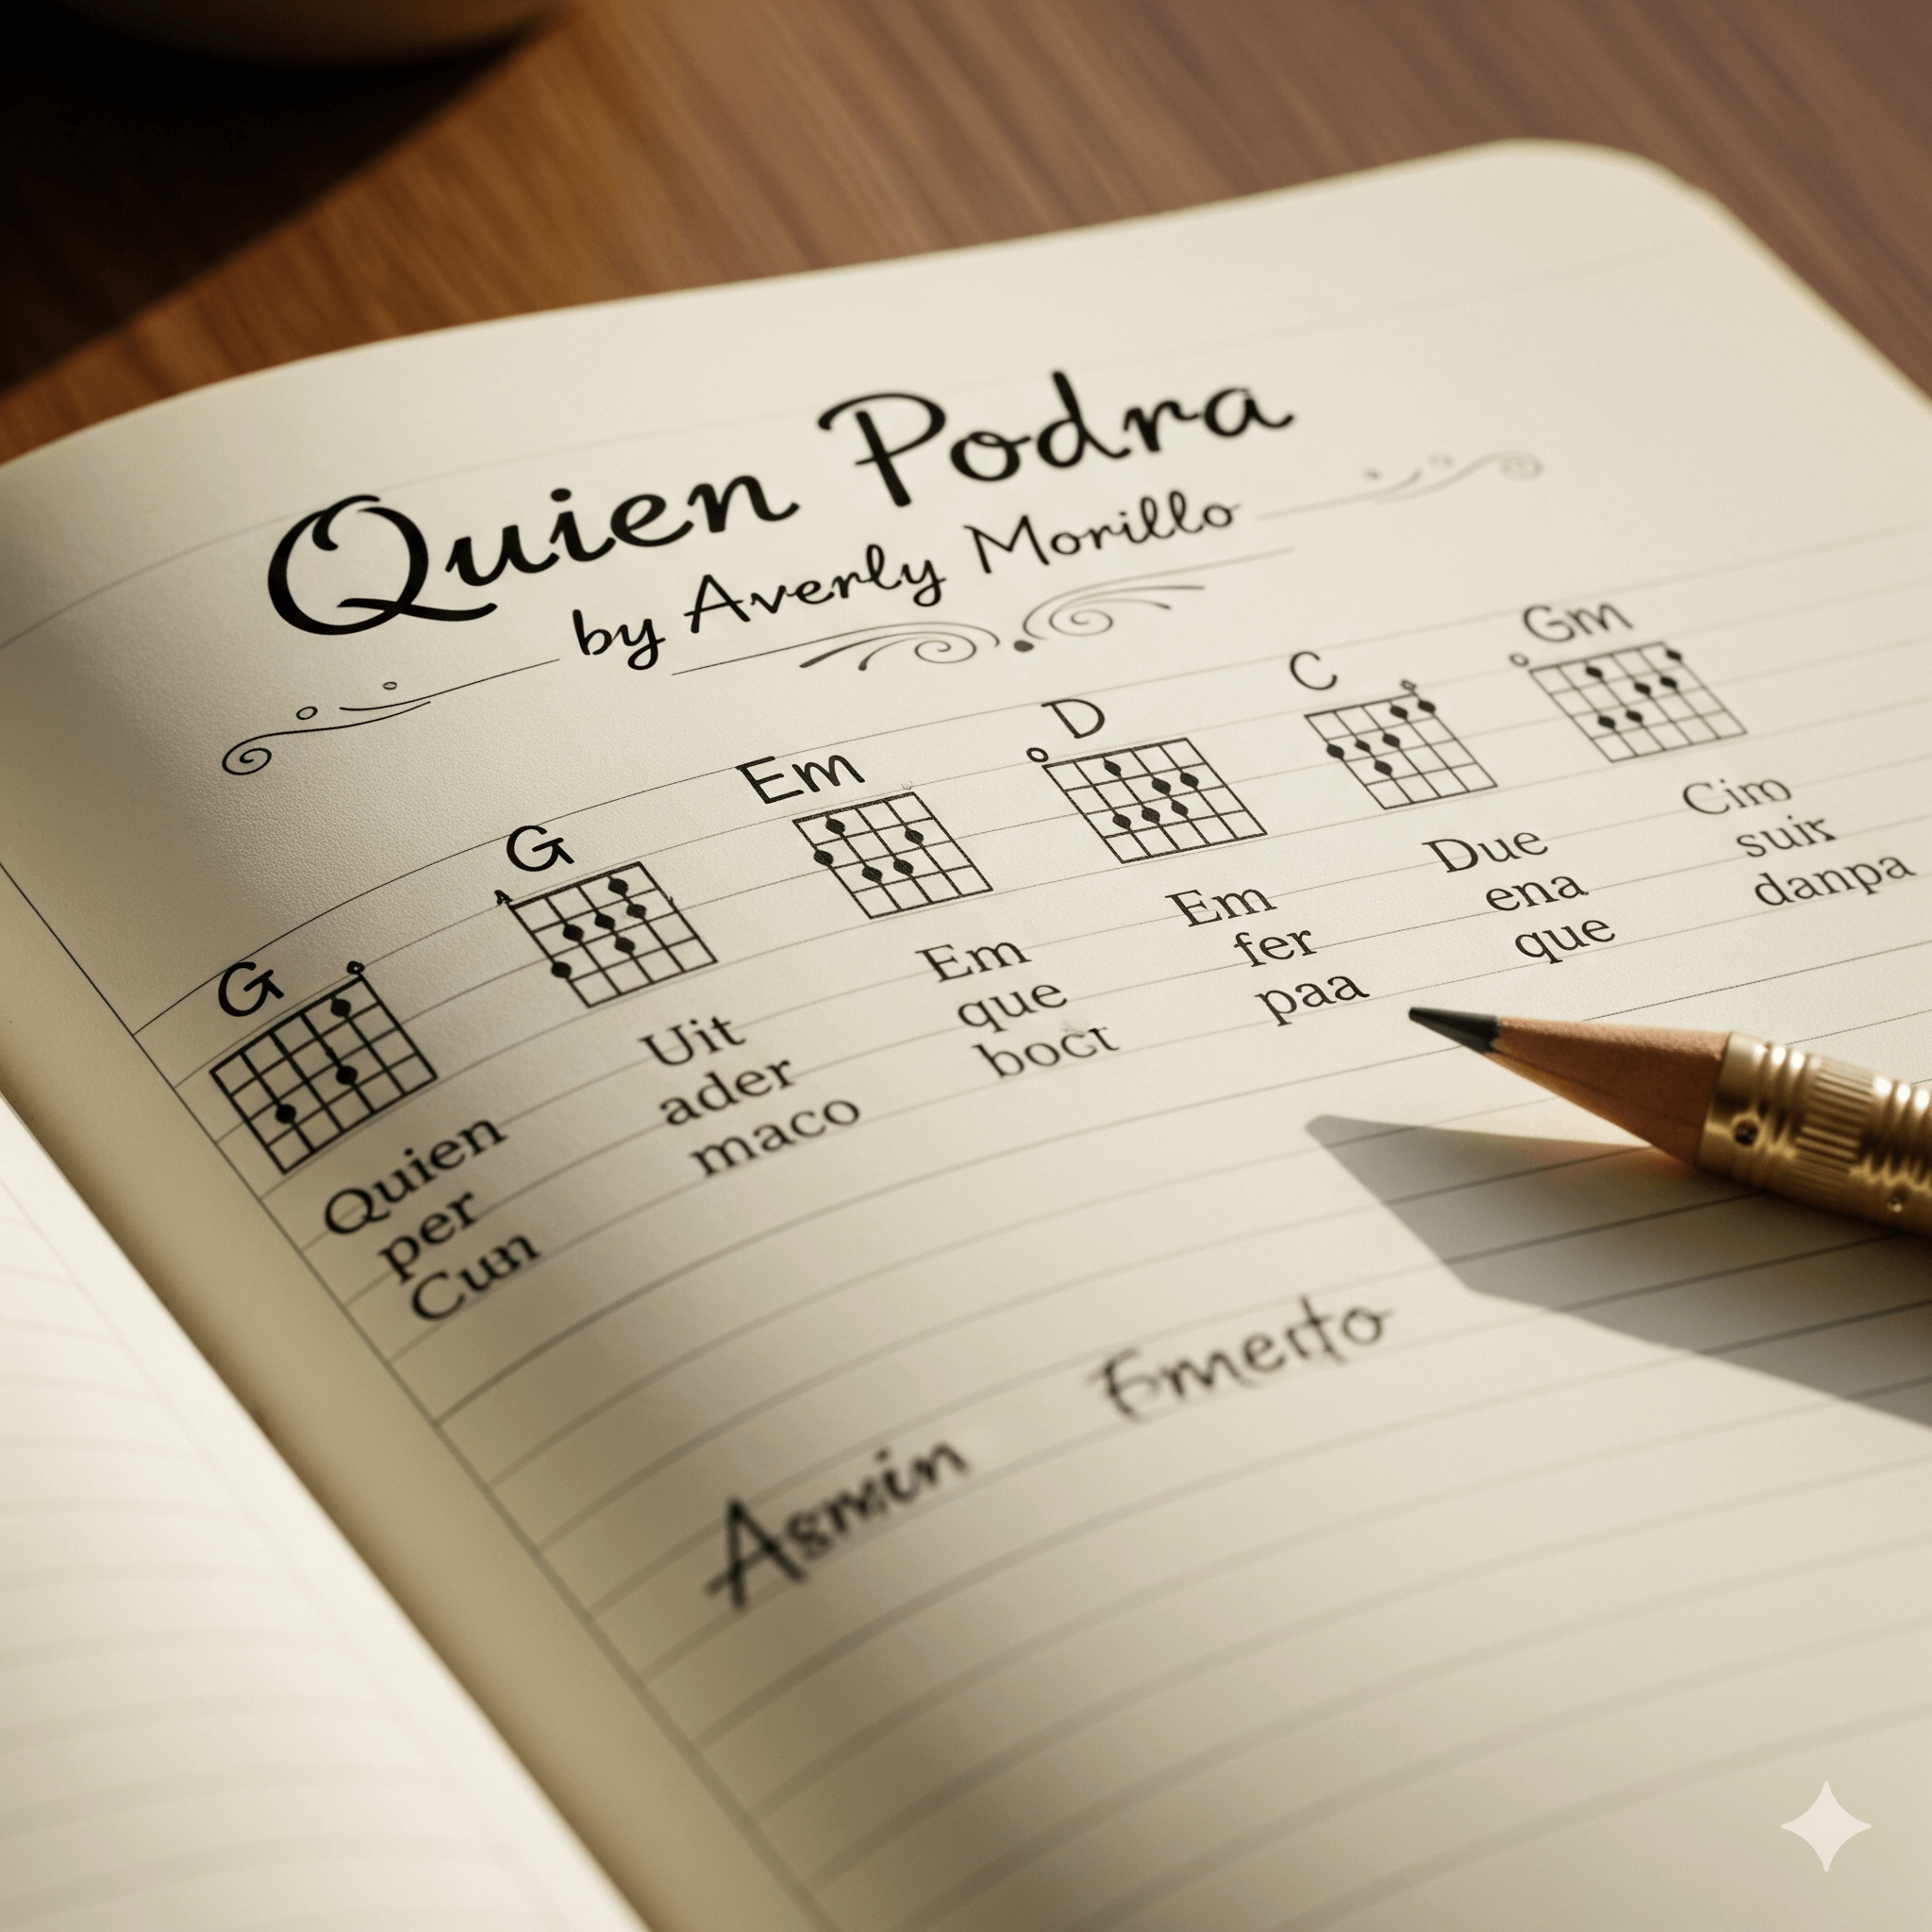 Quien Podra
by Averly Morillo
G G Em D C Gm
Quien Uit Em Em Due Cim
per ader que fer ena suis
Cun maco boct paa que danpa
Asmin Emerto